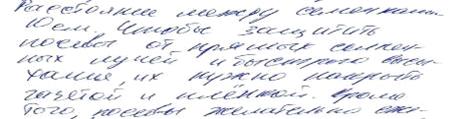 Расстояние между семенами
10 см. Чтобы защитить
посевы от прямых солнеч-
ных лучей и быстрого высы-
хания, их нужно накрыть
газетой и плёнкой. Кроме
того, посевы желательно еже-